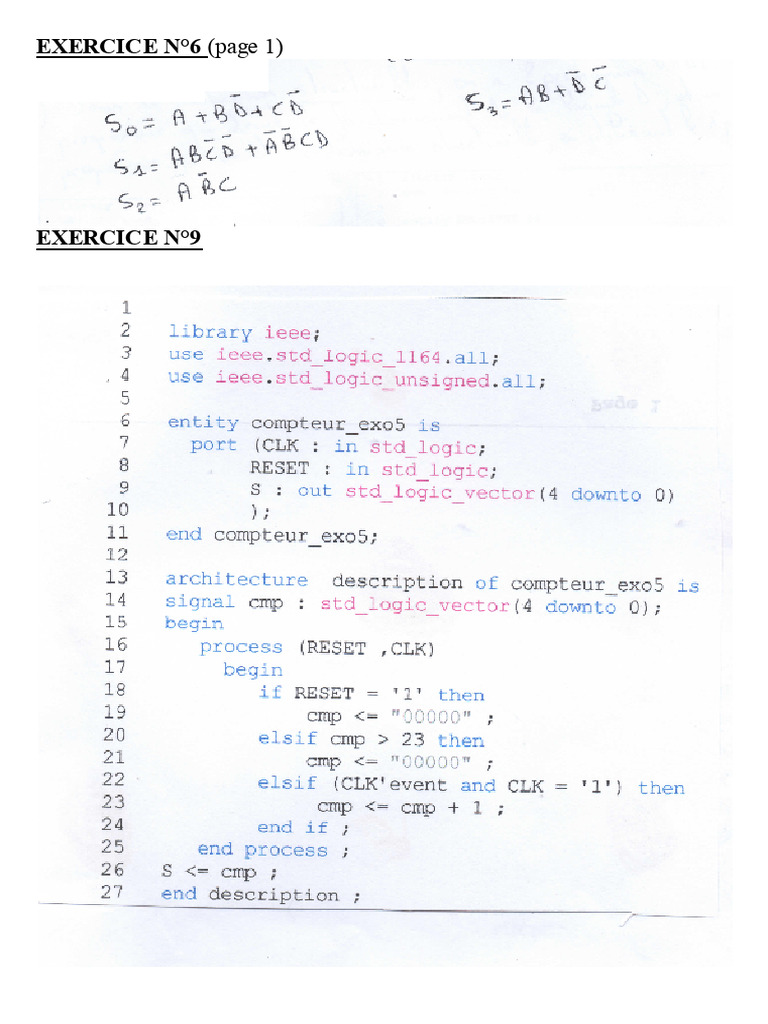 EXERCICE N°6 (page 1)
S₀ = A + BD̅ + CD̅
S₃ = AB + D̅ C̅
S₁ = ABC̅D̅ + A̅B̅CD
S₂ = A B̅C
EXERCICE N°9
1
2 library ieee;
3 use ieee.std_logic_1164.all;
4 use ieee.std_logic_unsigned.all;
5
6 entity compteur_exo5 is
7 port (CLK : in std_logic;
8 RESET : in std_logic;
9 S : out std_logic_vector(4 downto 0)
10 );
11 end compteur_exo5;
12
13 architecture description of compteur_exo5 is
14 signal cmp : std_logic_vector(4 downto 0);
15 begin
16 process (RESET ,CLK)
17 begin
18 if RESET = '1' then
19 cmp <= "00000" ;
20 elsif cmp > 23 then
21 cmp <= "00000" ;
22 elsif (CLK'event and CLK = '1') then
23 cmp <= cmp + 1 ;
24 end if ;
25 end process ;
26 S <= cmp ;
27 end description ;